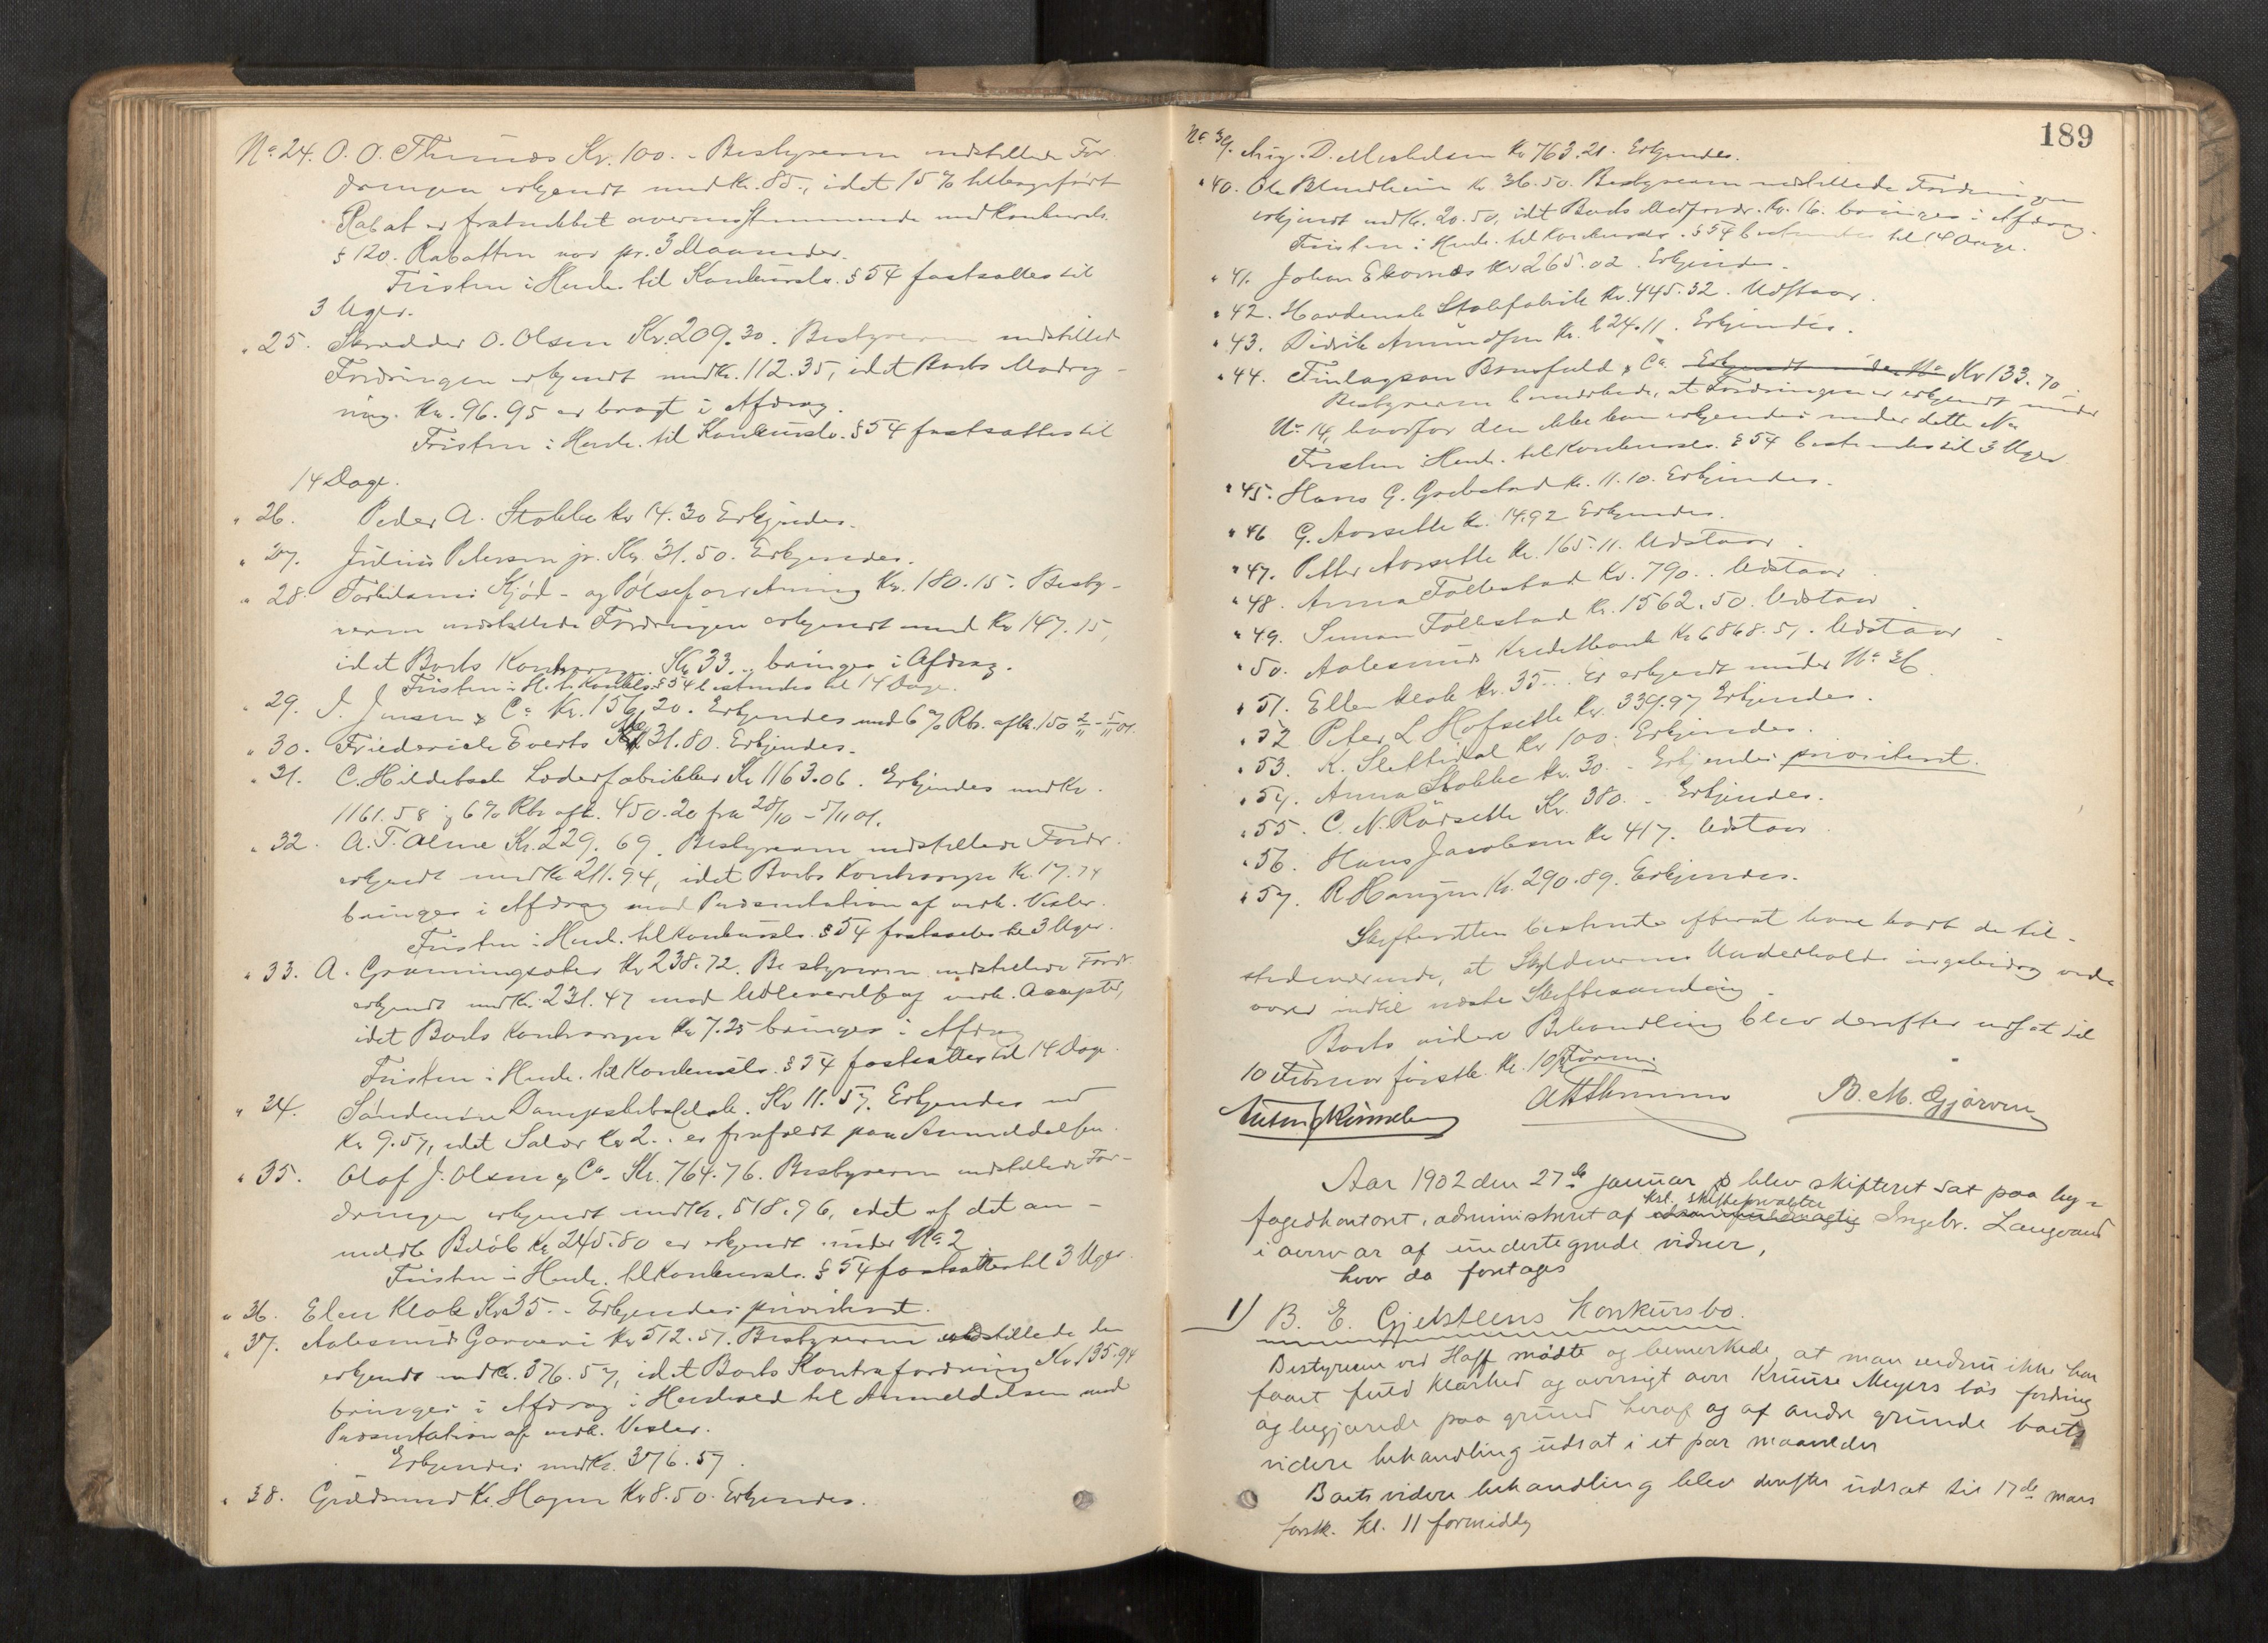 No 24. O. O. Thunæs Kr. 100.- Bestyreren indstillede For-
dringen erkjendt med Kr. 85., idet 15 % tilbageført
Rabat er fratrukket overensstemmende med Konkursl.
§ 120. Rabatten var pr. 3 Maaneder.
Fristen i Henh. til Konkursl. § 54 fastsattes til
3 Uger.
" 25. Skrædder O. Olsen Kr. 209.30. Bestyreren indstillede
Fordringen erkjendt med Kr. 112.35, idet Boets Modreg-
ning Kr. 96.95 er bragt i Afdrag.
Fristen i Henh. til Konkursl. § 54 fastsattes til
14 Dage.
" 26. Peder A. Stokke Kr 14.30 Erkjendes.
" 27. Julius Petersen jr. Kr. 31.50. Erkjendes.
" 28. Kjød- og Pølseforretning Kr. 180.15. Besty-
reren indstillede Fordringen erkjendt med Kr 147.15,
idet Boets Kr 33.- bringes i Afdrag.
Fristen i H. t. Konkl. § 54 bestemtes til 14 Dage.
" 29. J. Jensen & Co Kr. 156.20. Erkjendes med 6 % Rtr. af Kr. 150 2/11 - 5/11 01.
" 30. Friederich Everts 31.80. Erkjendes.
" 31. C. Hildebach Læderfabrikker Kr 1163.06. Erkjendes med Kr.
1161.58 6 % Rtr af Kr. 450.20 fra 28/10 - 5/11 01.
" 32. A. T. Alme Kr. 229.69. Bestyreren indstillede Fordr.
erkjendt med Kr 211.94, idet Boets Kontrareg. Kr. 17.74
bringes i Afdrag mod Præsentation af vedk. Vexler.
Fristen i Henh. til Konkursl. § 54 fastsattes til 3 Uger.
" 33. A. Grønningsæter Kr 238.72. Bestyreren indstillede Fordr.
erkjendt med Kr. 231.47 mod Udlevering af vedk. Accepter,
idet Boets Kontrareg. Kr 7.25 bringes i Afdrag
Fristen i Henh. til Konkursl. § 54 fastsattes til 14 Dage.
" 34. Søndenfre Dampskibsselsk. Kr 11.57. Erkjendes med
Kr 9.57, idet Salær Kr 2.- er frafaldt paa Anmeldelsen.
" 35. Olaf J. Olsen & Co. Kr. 764.76. Bestyreren indstillede For-
dringen erkjendt med Kr. 518.96, idet af det an-
meldte Beløb Kr 245.80 er erkjendt under No 2
Fristen i Henh. til Konkursl. § 54 fastsattes til 3 Uger.
" 36. Elen Klok Kr 35.- Erkjendes prioritert.
" 37. Aalesunds Garveri Kr 512.51. Bestyreren indstillede den
erkjendt med Kr. 376.57, idet Boets Kontrafordring Kr 135.94
bringes i Afdrag i Henhold til Anmeldelsen mod
Præsentation af vedk. Vexler.
Erkjendes med Kr. 376.57.
" 38. Gudmund K. Hagen Kr 8.50. Erkjendes.
189
No 39. Aug. D. Michelsen Kr 763.21. Erkjendes.
" 40. Ole Blindheim Kr 36.50. Bestyreren indstillede Fordringen
erkjendt med Kr. 20.50, idet Boets Modfordr. Kr. 16. bringes i Afdrag.
Fristen i Henh. til Konkursl. § 54 bestemtes til 14 Dage.
" 41. Johan Ekornæs Kr 265.02. Erkjendes.
" 42. Hovdenak Stolefabrik Kr. 445.32. Udstaar.
" 43. Didrik Amundsen Kr. 224.11. Erkjendes.
" 44. Finlayson Bousfield & Co. Erkjendt under No Kr 133.70
Bestyreren bemærkede, at Fordringen er erkjendt under
No 14, hvorfor den ikke kan erkjendes under dette No
Fristen i Henh. til Konkursl. § 54 bestemtes til 3 Uger.
" 45. Hans G. Grebstad Kr. 11.10. Erkjendes.
" 46 G. Aarsette Kr. 14.92 Erkjendes.
" 47. Petter Aarsette Kr. 165.11. Udstaar.
" 48. Anna Follestad Kr. 790.- Udstaar
" 49. Simon Follestad Kr. 1562.50. Udstaar.
" 50. Aalesunds Kreditbank Kr 6868.51. Udstaar.
" 51. Ellen Klok Kr. 35.- Er erkjendt under No 36
" 52 Peter L Hofsette Kr. 339.97 Erkjendes.
" 53. K. Slettedal Kr 100. Erkjendes.
" 54. Anna Stokke Kr. 30.- Erkjendes prioritert.
" 55. C. N. Rørsette Kr 380.- Erkjendes.
" 56. Hans Jacobsen Kr 417. Udstaar.
" 57. R Haugen Kr. 290.89. Erkjendes.
Skifteretten bestemte efterat have hørt de til-
stedeværende, at Skyldnerens Underholds bidrag ved-
varer indtil næste Skiftesamling.
Boets videre Behandling blev derefter udsat til
10 Februar førstk. Kl. 10 Form.
B. M. Gjørven
Aar 1902 den 27de januar blev skifteret sat paa by-
fogedkontoret, administreret af kst. skifteforvalter Ingebr. Langeland
i nærvær af undertegnede vidner,
hvor da foretages
1) B. E. Gjelsteens Konkursbo.
Bestyreren ved Hoff mødte og bemerkede, at man endnu ikke har
faaet fuld klarhed og oversigt over Kruuse Meyers bo's fordring
og begjærede paa grund heraf og af andre grunde boets
videre behandling udsat i et par maaneder
Boets videre behandling blev derefter udsat til 17de mars
førstk. kl. 11 formiddag